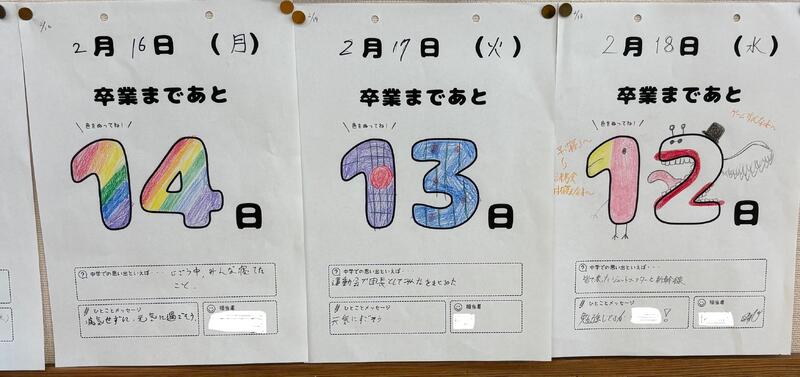 2月16日（月）
卒業まであと
色をぬってね！
14日
中学での思い出といえば・・・
じゅう中、みんな寝てた
こと。
ひとことメッセージ
病気せずに、元気に過ごそう
担当者
2月17日（火）
卒業まであと
色をぬってね！
13日
中学での思い出といえば・・・
運動会で団長としてみんなをまとめた
ひとことメッセージ
元気にすごそう
担当者
2月18日（水）
卒業まであと
12日
中学での思い出といえば・・・
ひとことメッセージ
勉強してね
！
担当者